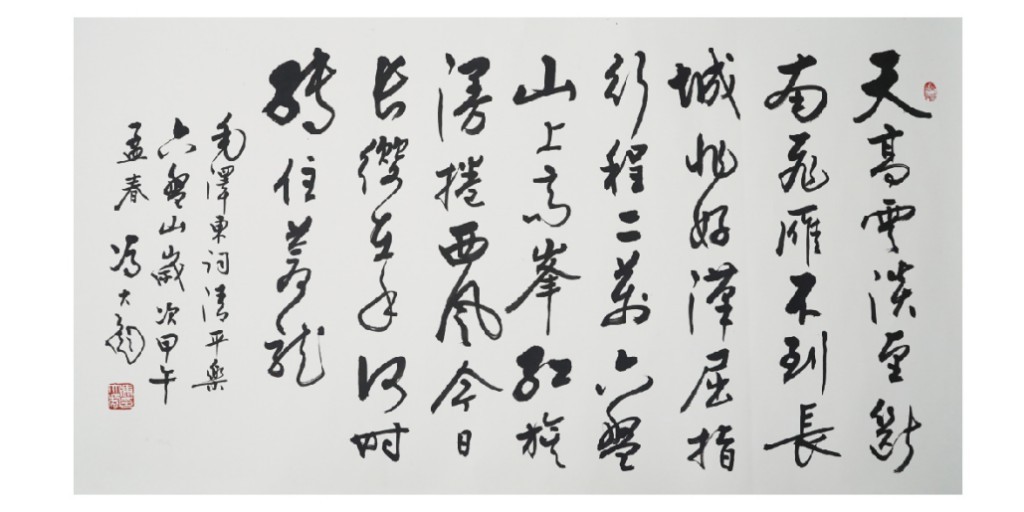 天高雲淡望斷
南飛雁不到長
城非好漢屈指
行程二萬六盤
山上高峯紅旗
漫捲西風今日
長纓在手何時
縛住蒼龍
毛澤東詞清平樂
六盤山歲次甲午
孟春 馮大彪